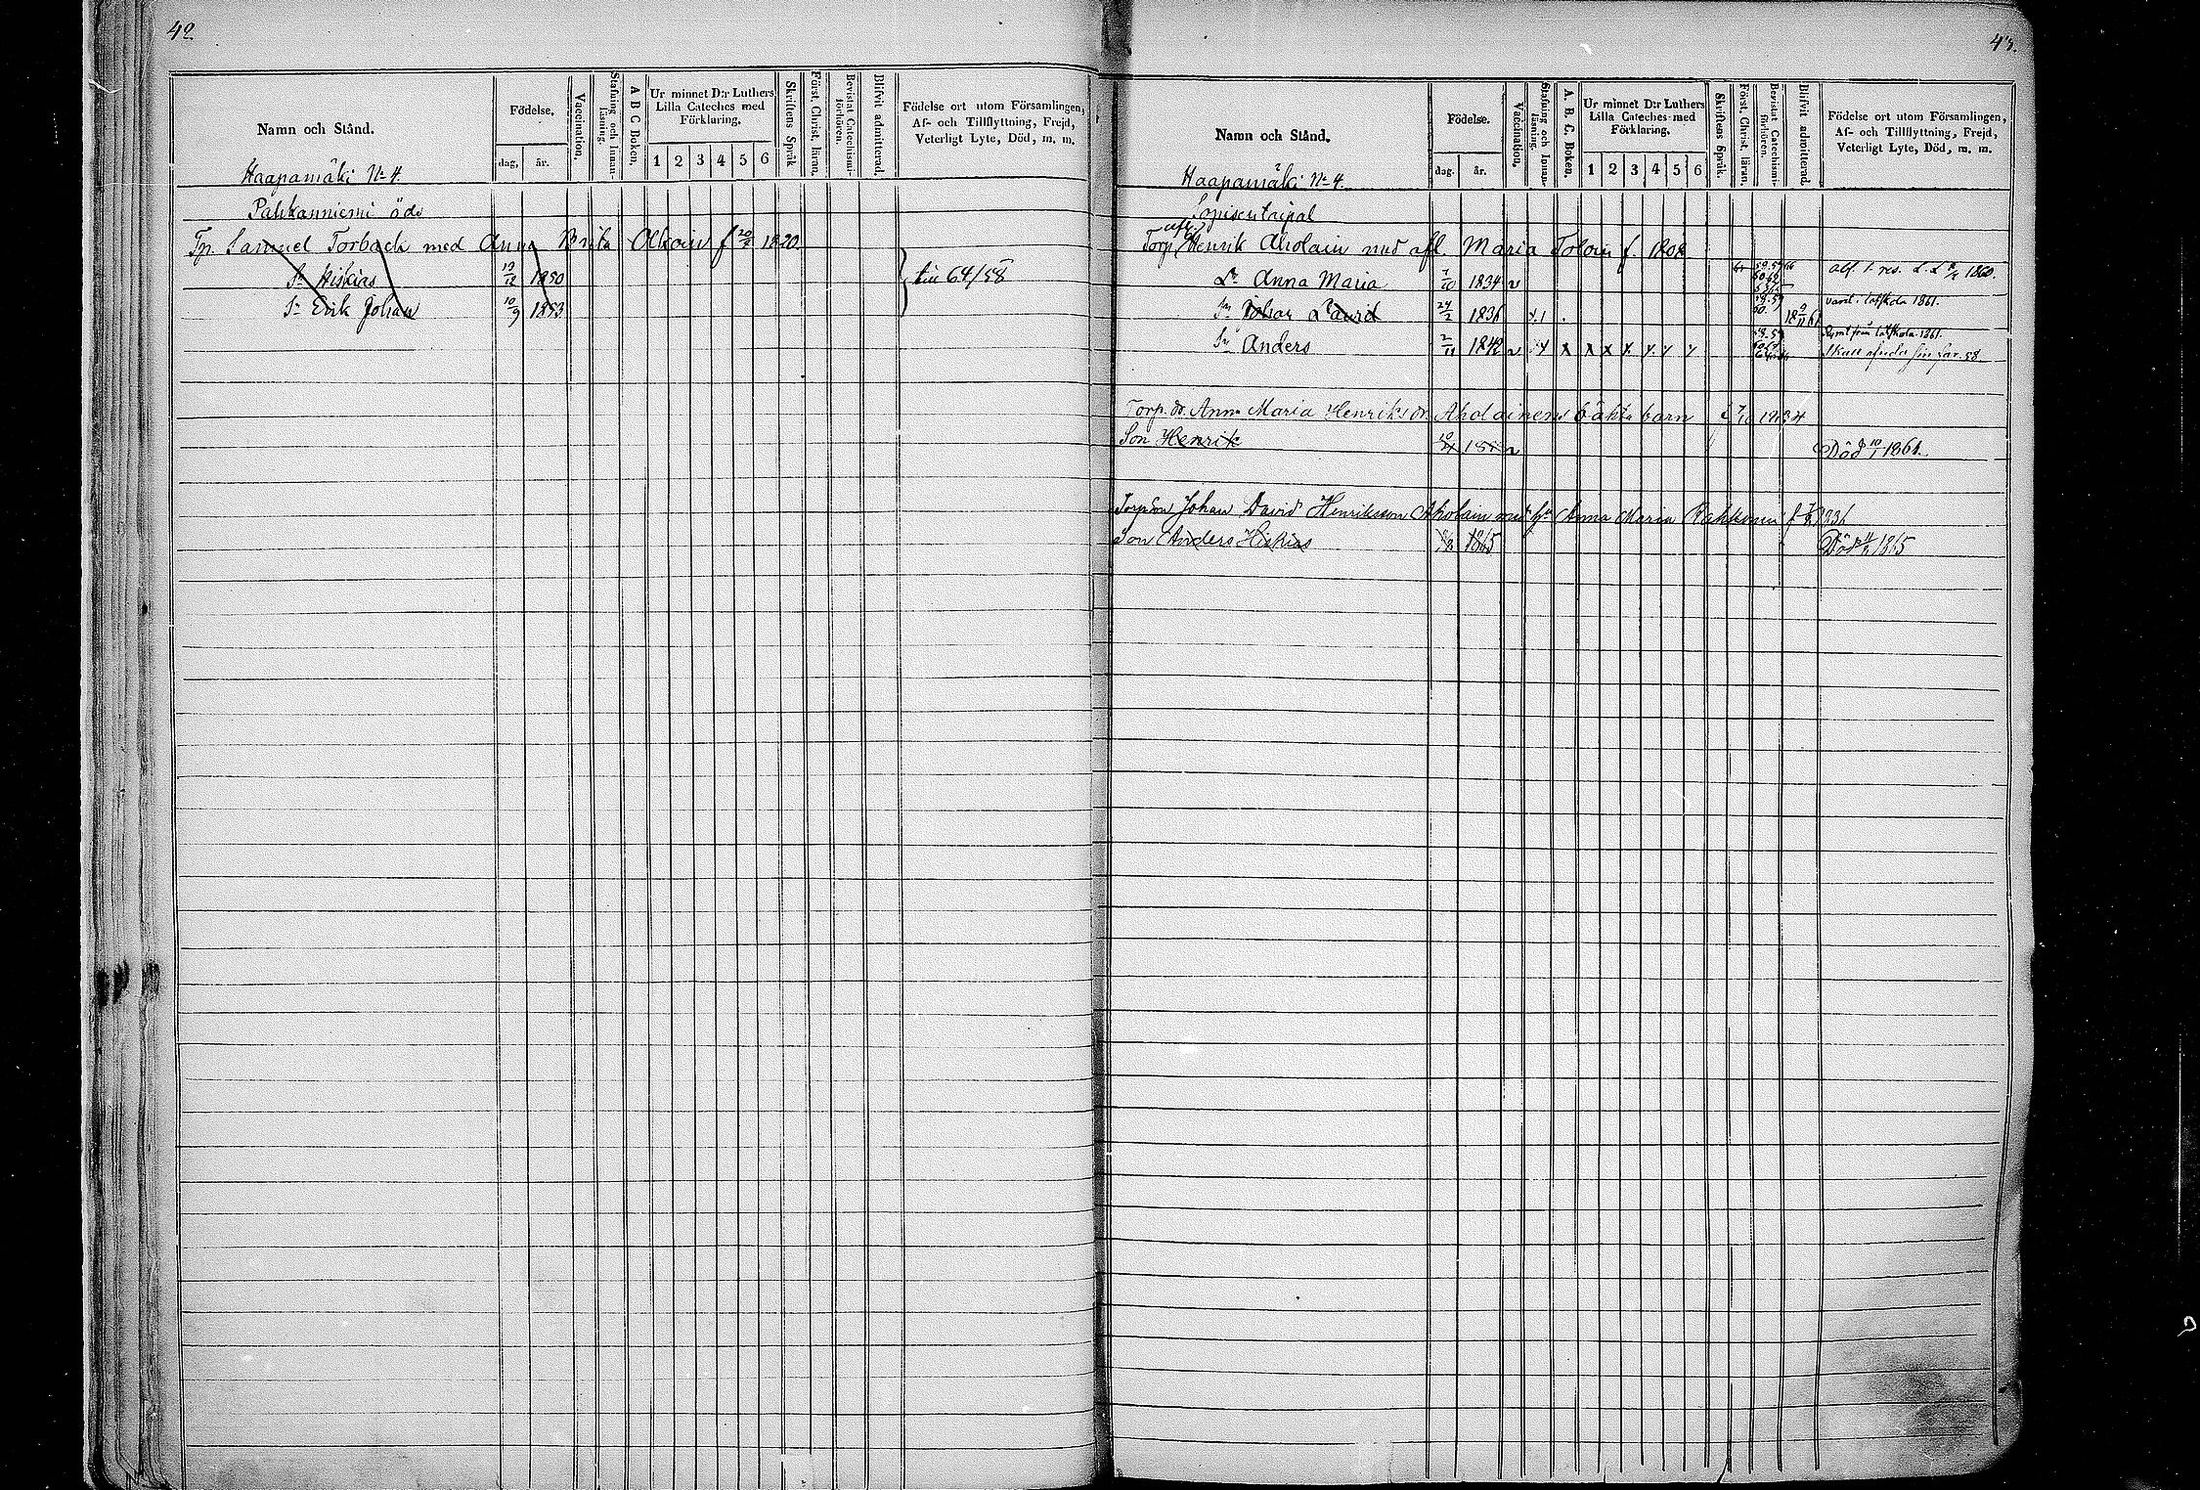 42
Namn och Stånd.
Födelse.
dag, år.
Vaccination.
Stafning och Innan-läsning.
A B C Boken.
Ur minnet D:r Luthers Lilla Cateches med Förklaring.
1 2 3 4 5 6
Skriftens Språk
Först. Christ. läran.
Bevistat Catechismi-förhören.
Blifvit admitterad.
Födelse ort utom Församlingen,
Af- och Tillflyttning, Frejd,
Veterligt Lyte, Död, m. m.
Haapamäki No 4.
Pahkanniemi öde
Tp. Samuel Torback med Anna Brita f 20 1820.
Sn Hiskias 1850
Sn Erik Johan 10/9 1853
64/58
43.
Namn och Stånd.
Födelse.
dag. år.
Vaccination.
Stafning och Innan-läsning.
A. B. C. Boken.
Ur minnet D:r Luthers Lilla Cateches med Förklaring.
1 2 3 4 5 6
Skriftens Språk.
Först. Christ. läran.
Bevistat Catechismi-förhören.
Blifvit admitterad.
Födelse ort utom Församlingen,
Af- och Tillflyttning, Frejd,
Veterligt Lyte, Död, m. m.
Haapamäki No 4.
Torp. Henrik Aholain med afl. Maria f. 1808
Dr Anna Maria 7/10 1834 1860.
Sn Johan David 24/2 1836 1861.
Sn Anders 1842 x x x x x x x 1861. 58
Torp. dr. Anna Maria Henriksdr Aholainens oäkta barn f 7/10 1834
Son Henrik Död 10/1 1861.
Torpson Johan David Henriksson Aholain med Anna Maria Pahkonen f
Son Anders Hiskias 1865 Död 1865